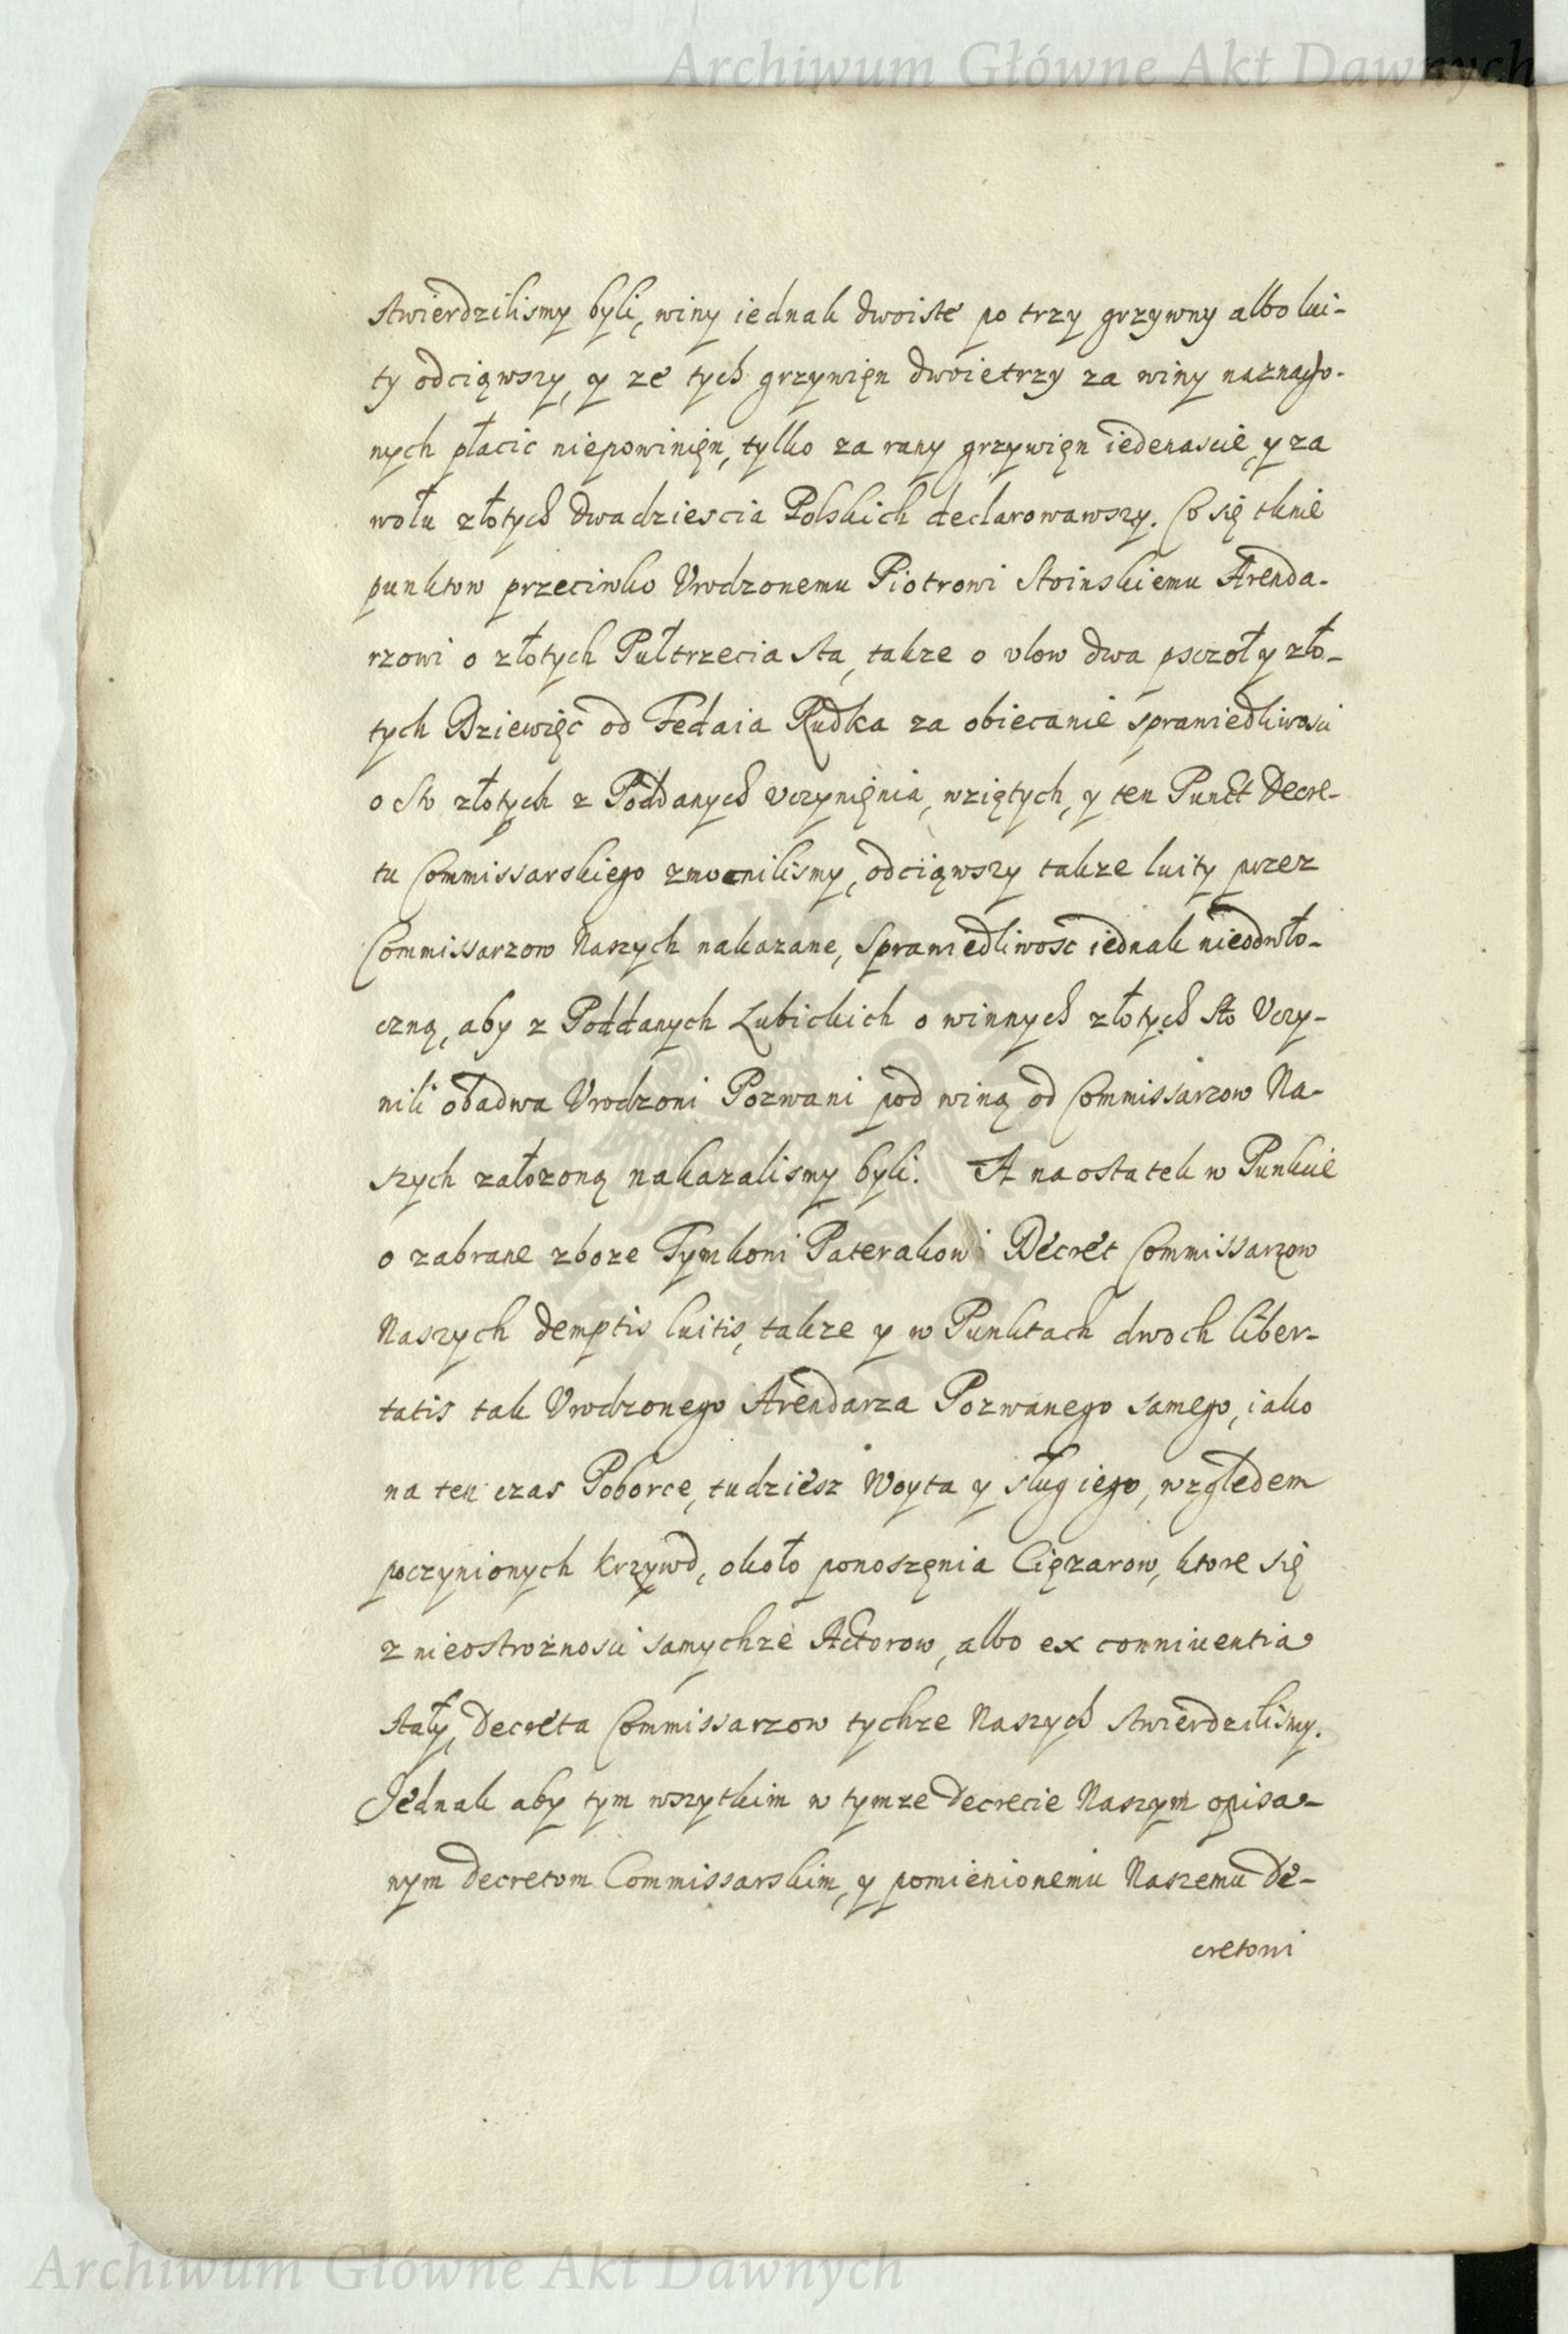 Archiwum Główne Akt Dawnych
stwierdzilismy byli, winy iednak dwoiste po trzy grzywny albo lui-
ty odciąwszy, y ze tych grzywięn dwoie trzy za winy naznaczo-
nych płacic niepowinięn, tylko za rany grzywięn iedenascie, y za
wołu złotych dwadziescia Polskich declarowawszy. Co się tknie
punktow przeciwko Vrodzonemu Piotrowi Stoinskiemu Arenda-
rzowi o złotych Pułtrzecia sta, takze o vlow dwa pszczoł y zło-
tych Dziewięc od Fedaia Rudka za obiecanie sprawiedliwosci
o Sto złotych z Poddanych vczynięnia, wziętych, y ten Punct Decre-
tu Commissarskiego zmocnilismy, odciąwszy takze luity przez
Commissarzow Naszych nakazane, sprawiedliwosc iednak nieodwło-
czną, aby z Poddanych Lubickich o winnych złotych sto Vczy-
nili obadwa Vrodzoni Pozwani pod winą od Commissarzow Na-
szych załozoną nakazalismy byli. A na ostatek w Punkcie
o zabrane zboze Tymkoni Paterakowi Decret Commissarzow
Naszych demptis luitis, takze y w Punktach dwoch liber-
tatis tak Vrodzonego Arendarza Pozwanego samego, iako
na ten czas Poborce, tudziesz Woyta y sług iego, względem
poczynionych krzywd, około ponoszęnia Cięzarow, ktore się
z nieostroznosci samychze Actorow, albo ex conniuentia
stały, Decreta Commissarzow tychze Naszych stwierdzilismy.
Jednak aby tym wszytkim w tymze Decrecie Naszym opisa-
nym Decretom Commissarskim, y pomienionemu Naszemu De-
cretowi
Archiwum Główne Akt Dawnych